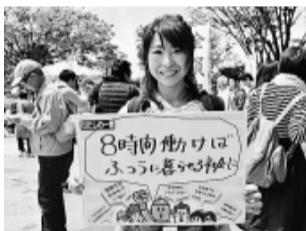 8時間働けば
ふつうに暮らせる社会に